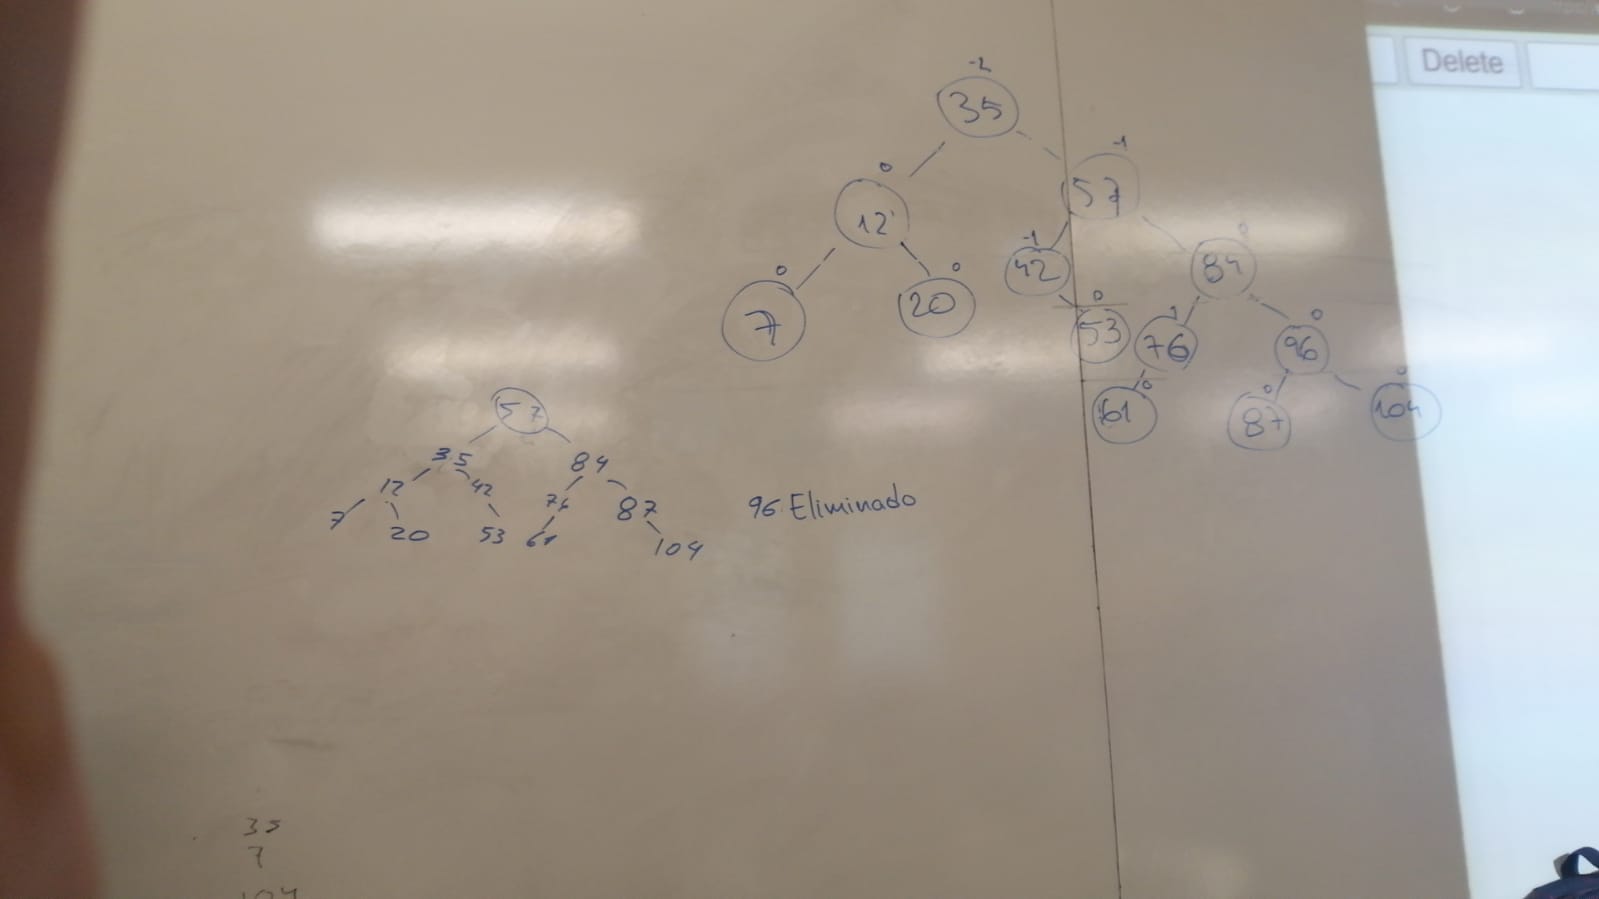 Delete
-2
35
-1
0
57
12
0
-1
84
42
0
0
7
20
0
53
1
76
0
96
0
61
0
87
0
104
57
35
84
12
42
76
87
7
20
53
61
104
96 Eliminado
35
7
104